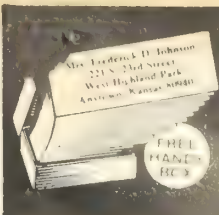 Mrs. Frederick D. Johnson
221 S. 23rd Street
West Highland Park
Anytown, Kansas
FREE
HANDY
BOX